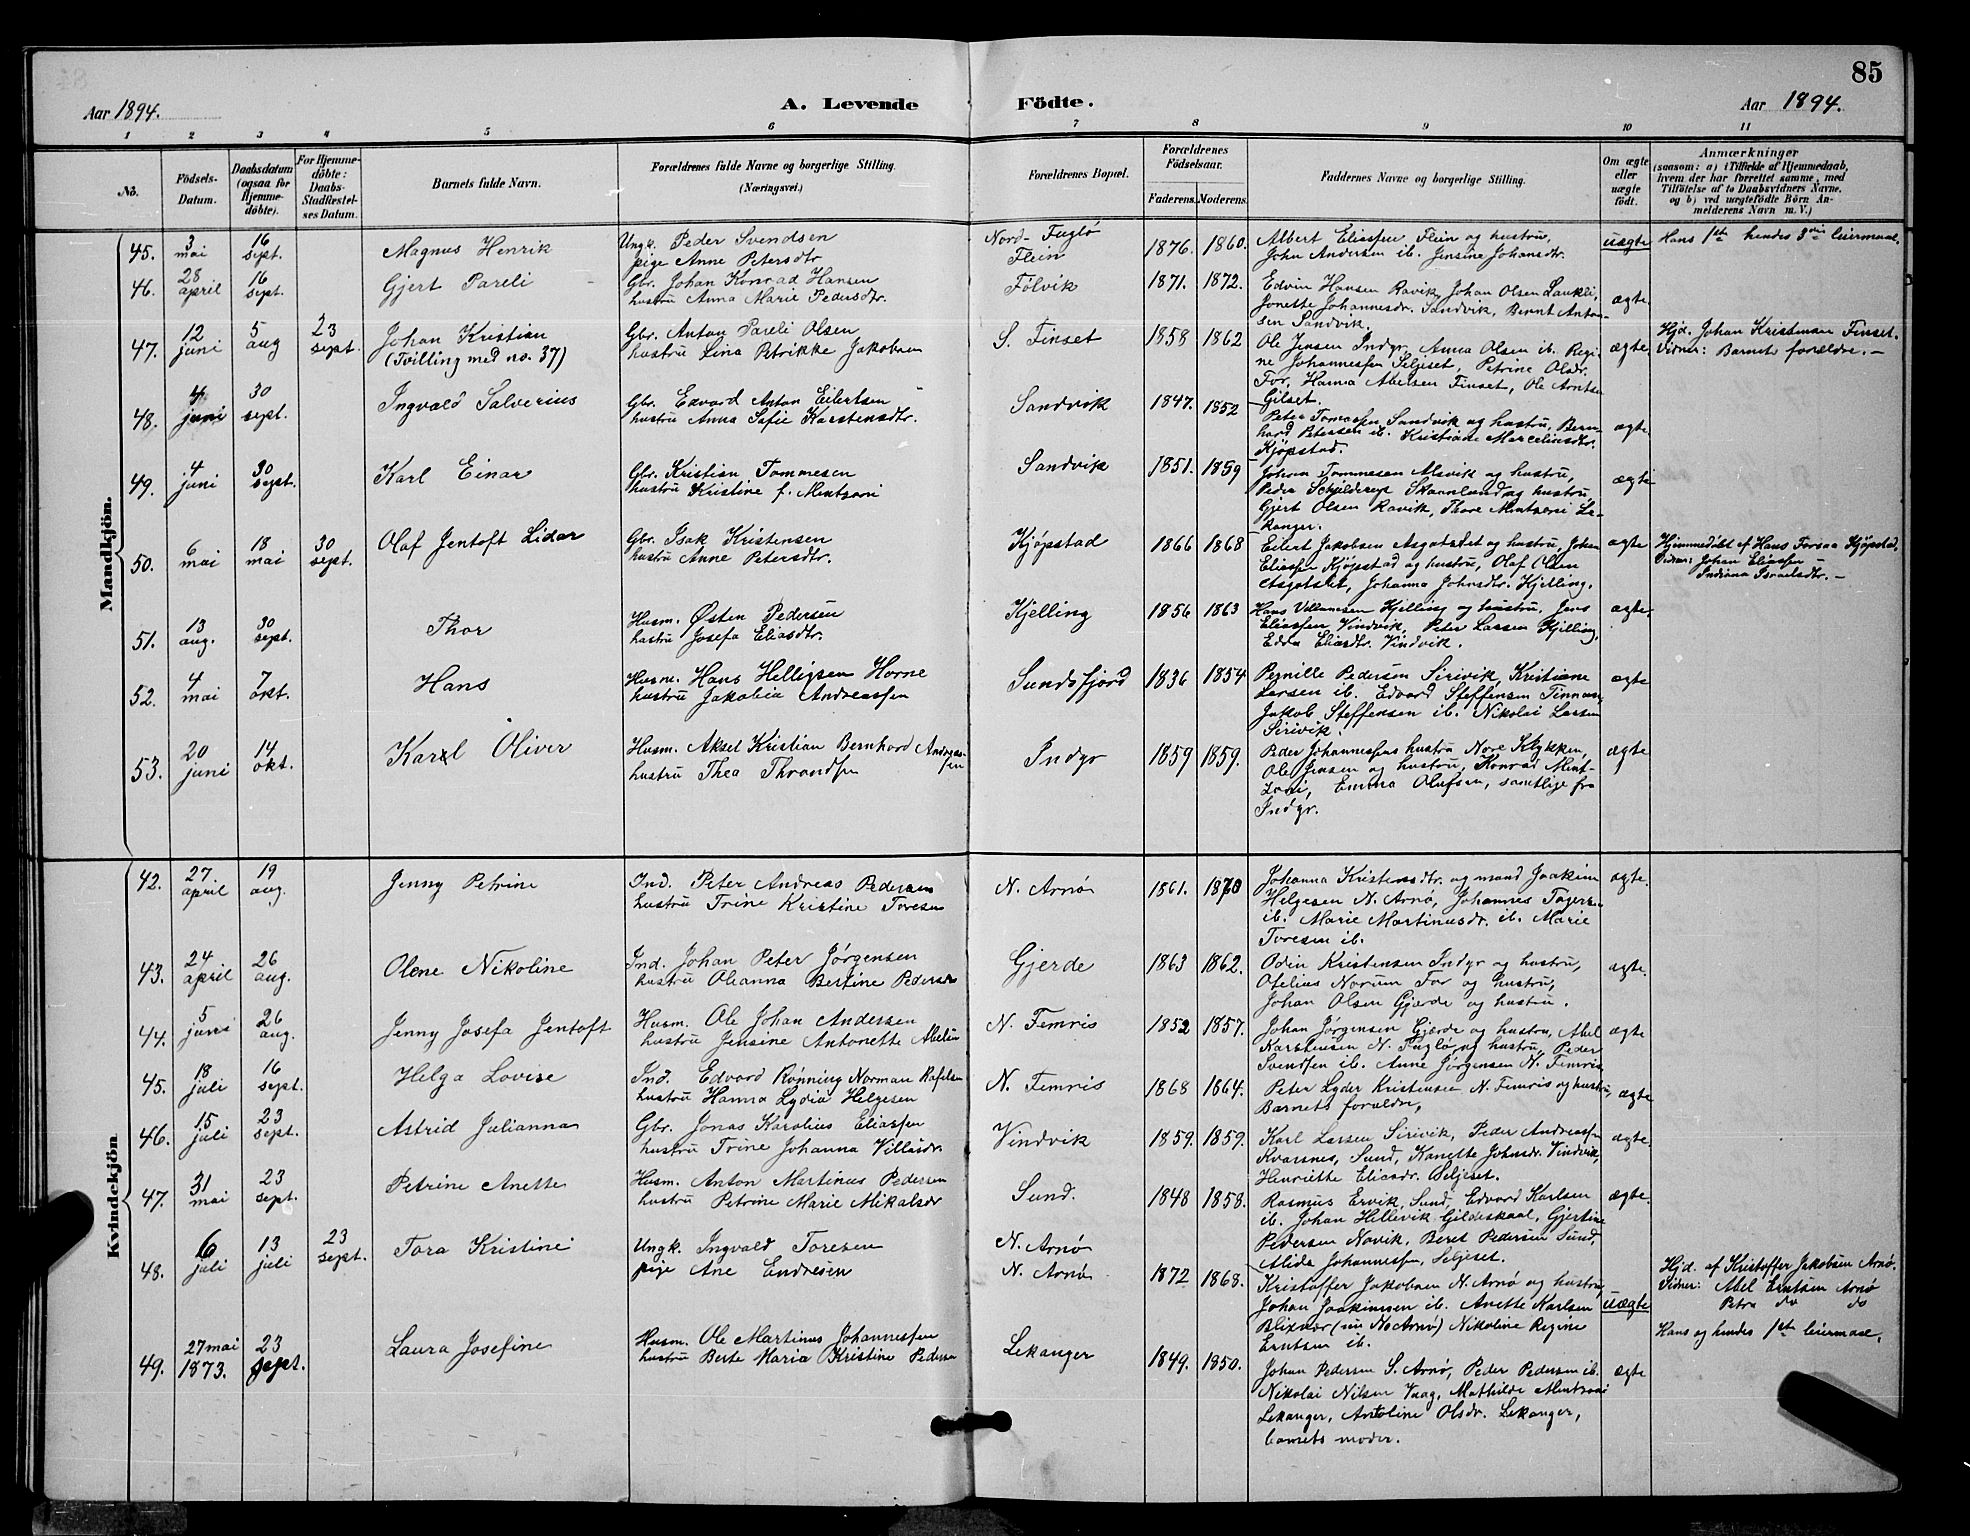 85
Aar 1894.
A. Levende Födte.
Aar 1894.
1 2 3 4 5 6 7 8 9 10 11
No.
Födsels-Datum.
Daabsdatum (ogsaa for Hjemme-döbte).
For Hjemme-döbte: Daabs-Stadfæstel-ses Datum.
Barnets fulde Navn.
Forældrenes fulde Navne og borgerlige Stilling.
(Næringsvei.)
Forældrenes Bopæl.
Forældrenes Födselsaar.
Faderens. Moderens.
Faddernes Navne og borgerlige Stilling.
Om ægte eller uægte födt.
Anmærkninger
(saasom: a) i Tilfælde af Hjemmedaab,
hvem der har forrettet samme, med
Tilföielse af to Daabsvidners Navne,
og b) ved uægtefödte Börn An-
melderens Navn m. V.)
Mandkjön.
45. 3 mai 16 sept. Magnus Henrik
Ungk. Peder Svendsen
pige Anne Petersdtr
Nord-Fuglø
Flein
1876. 1860.
Albert Eliassen Flein og hustru,
John Andersen ib. Jensine Johansdtr.
uægte
Hans 1ste hendes 3die leiermaal.
46. 28 april 16 sept. Gjert Pareli
Gbr. Johan Konrad Hansen
hustru Anna Marie Pedersdtr.
Følvik
1871. 1872.
Edvin Hansen Ravik, Johan Olsen Laukli,
Jonette Johannesdr. Sandvik, Bernt Anton-
sen Sandvik.
ægte.
47. 12 juni 5 aug 23 sept. Johan Kristian
(Tvilling med no. 37)
Gbr. Anton Pareli Olsen
hustru Lina Petrikke Jakobsen
S. Finset
1858 1862
Ole Jensen Indyr, Anna Olsen ib. Regi-
ne Johannessen Seljeset, Petrine Olsdr.
For, Hanna Abelsen Finset, Ole Arntsen
Gilset.
ægte
Hjd. Johan Kristensen Finset.
Vidner: Barnets forældre. –
48. 4 juni 30 sept. Ingvald Salverius
Gbr. Edvard Anton Eilertsen
hustru Anna Sofie Karstensdtr.
Sandvik
1847. 1852
Peter Tomassen Sandvik og hustru, Bern-
hard Petersen ib. Kristiane Marceliusdtr.
Kjøpstad.
ægte
49. 4 juni 30 sept. Karl Einar
Gbr. Kristian Tommesen
hustru Kristine f. Mentzoni
Sandvik
1851. 1859
Johan Tommesen Alsvik og hustru,
Peder Schjelderup Skaanland og hustru,
Gjert Olsen Ravik, Thore Mentzoni Le-
kanger.
ægte
50. 6 mai 18 mai 30 sept. Olaf Jentoft Lidar
Gbr. Isak Kristensen
hustru Anne Petersdtr.
Kjøpstad
1866 1868
Eilert Jakobsen Asgotslet og hustru, Johan
Eliassen Kjøpstad og hustru, Olaf Olsen
Asgotslet, Johanna Johnsdtr. Kjelling.
ægte
Hjemmedøbt af Hans Forsaa Kjøpstad,
Vidner: Johan Eliassen –
Indiana Israelsdtr. –
51. 13 aug. 30 sept. Thor
Husm. Østen Pedersen
hustru Josefa Eliasdtr.
Kjelling
1856 1863
Hans Villumsen Kjelling og hustru, Jens
Eliassen Vindvik, Peter Larsen Kjelling,
Edda Eliasdtr. Vindvik.
ægte
52. 4 mai 7 okt. Hans
Husm. Hans Helligsen Horne
hustru Jakobia Andreassen
Sundsfjord
1836 1854
Pernille Pedersen Sirivik, Kristiane
Larsen ib. Edvard Steffensen
Jakob Steffensen ib. Nikolai Larsen
Sirivik.
ægte
53. 20 juni 14 okt. Karl Oliver
Husm. Aksel Kristian Bernhard Andreas-
sen
hustru Thea Thrandsen
Indyr
1859 1859.
Peder Johannesens hustru Nore Klykken,
Ole Jensen og hustru, Konrad Ment-
zoni, Emma Olufsen, samtlige fra
Indyr.
ægte
Kvindekjön.
42. 27. april 19 aug. Jenny Petrine
Ind. Peter Andreas Pedersen
hustru Trine Kristine Toresen
N. Arnø
1861. 1870
Johanna Kristensdtr. og mand Joakim
Helgesen N. Arnø, Johannes
ib. Marie Martinusdr. ib. Marie
Toresen ib.
ægte.
43. 24 april 26 aug. Olene Nikoline
Ind. Johan Peter Jørgensen
hustru Oleanna Bertine Pedersdr
Gjerde
1863 1862.
Odin Kristensen Indyr og hustru,
Otelius Norum For og hustru,
Johan Olsen Gjerde og hustru.
ægte.
44. 5 juni 26 aug. Jenny Josefa Jentoft
Husm. Ole Johan Andersen
hustru Jensine Antonette Abelsen
N. Femris
1852 1857.
Johan Jørgensen Gjerde og hustru, Abel
Karstensen N. Fuglø og hustru, Peder
Svendsen ib. Anne Jørgensen N. Femris
ægte
45. 18 juli 16 sept. Helga Lovise
Ind. Edvard Rønning Norman Rafelsen
hustru Hanna Lydia Helgesen
N. Femris
1868 1864.
Peter Lyder Kristensen N. Femris og hustru,
Barnets forældre,
ægte
46. 15 juli 23 sept. Astrid Julianna
Gbr. Jonas Karolius Eliassen
hustru Trine Johanna Villasdr.
Vindvik
1859. 1859.
Karl Larsen Sirivik, Peder Andreassen
Kvarsnes, Sund, Kanette Johnsdr. Vindvik,
Henriette Eliasdr. Seljeset.
ægte.
47. 31 mai 23 sept. Petrine Anette
Husm. Anton Martinus Pedersen
hustru Petrine Marie Mikalsdr
Sund.
1848 1858.
Rasmus Ervik, Sund, Edvard Karlsen
ib. Johan Hellevik Gildeskaal, Gjertine
Pedersen Novik, Beret Pedersen Sund,
Alida Johannessen, Seljeset.
ægte.
48. 6 juli 13 juli 23 sept. Tora Kristine
Ungk. Ingvald Toresen
pige Ane Endresen
N. Arnø
N. Arnø
1872 1868.
Kristoffer Jakobsen N. Arnø og hustru,
Johan Joakimsen ib. Anette Karlsen
Blixvær (nu N. Arnø) Nikoline Regine
Erntsen ib.
uægte
Hjd. af Kristoffer Jakobsen Arnø.
Vidner: Abel Erntsen Arnø
Petra do do
Hans og hendes 1ste leiermaal.
49. 27 mai 1873. 23 sept. Laura Josefine
Husm. Ole Martinus Johannessen
hustru Berte Maria Kristine Pedersen
Lekanger
1849. 1850.
Johan Pedersen S. Arnø, Peder Pedersen ib.
Nikolai Nilsen Vaag, Mathilde Mentzoni
Lekanger, Antoline Olsdr. Lekanger,
barnets moder.
ægte